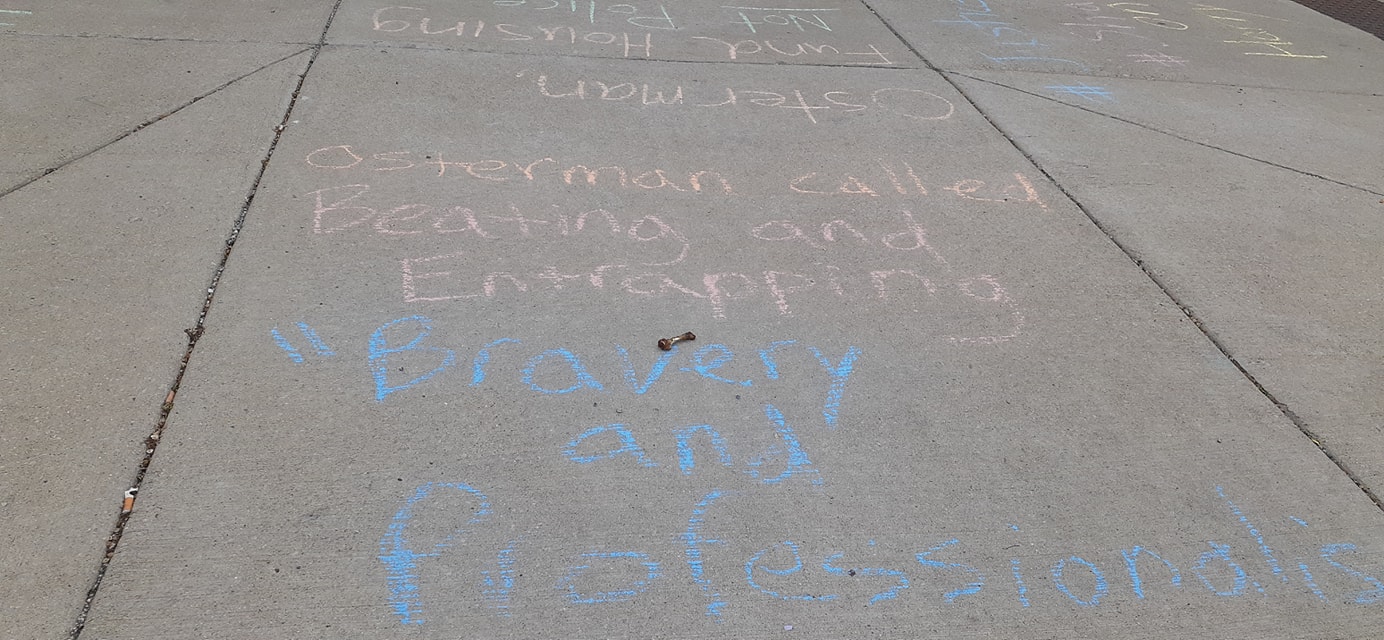 Osterman called
Beating and
Entrapping
"Bravery
and
Professionalis
Osterman,
Fund Housing
Not Police
#
#